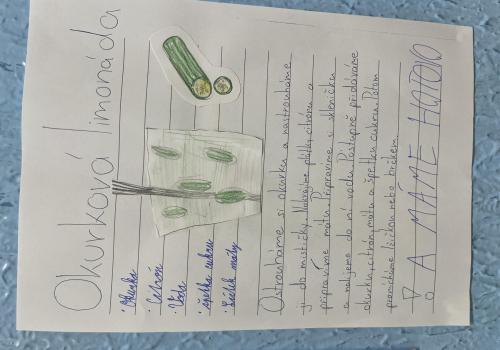 Okurková limonáda
• Okurka
• Citrón
• Voda
• špetka cukru
• lístek máty
Ostrouháme si okurku a nastrouháme
ji do mističky. Nakrájíme plátky citrónu a
připravíme mátu. Připravíme si skleničku
a nalijeme do ní vodu. Postupně přidáváme
okurku, citrón, mátu a špetku cukru. Potom
promícháme lžičkou nebo brčkem.
A MÁME HOTOVO